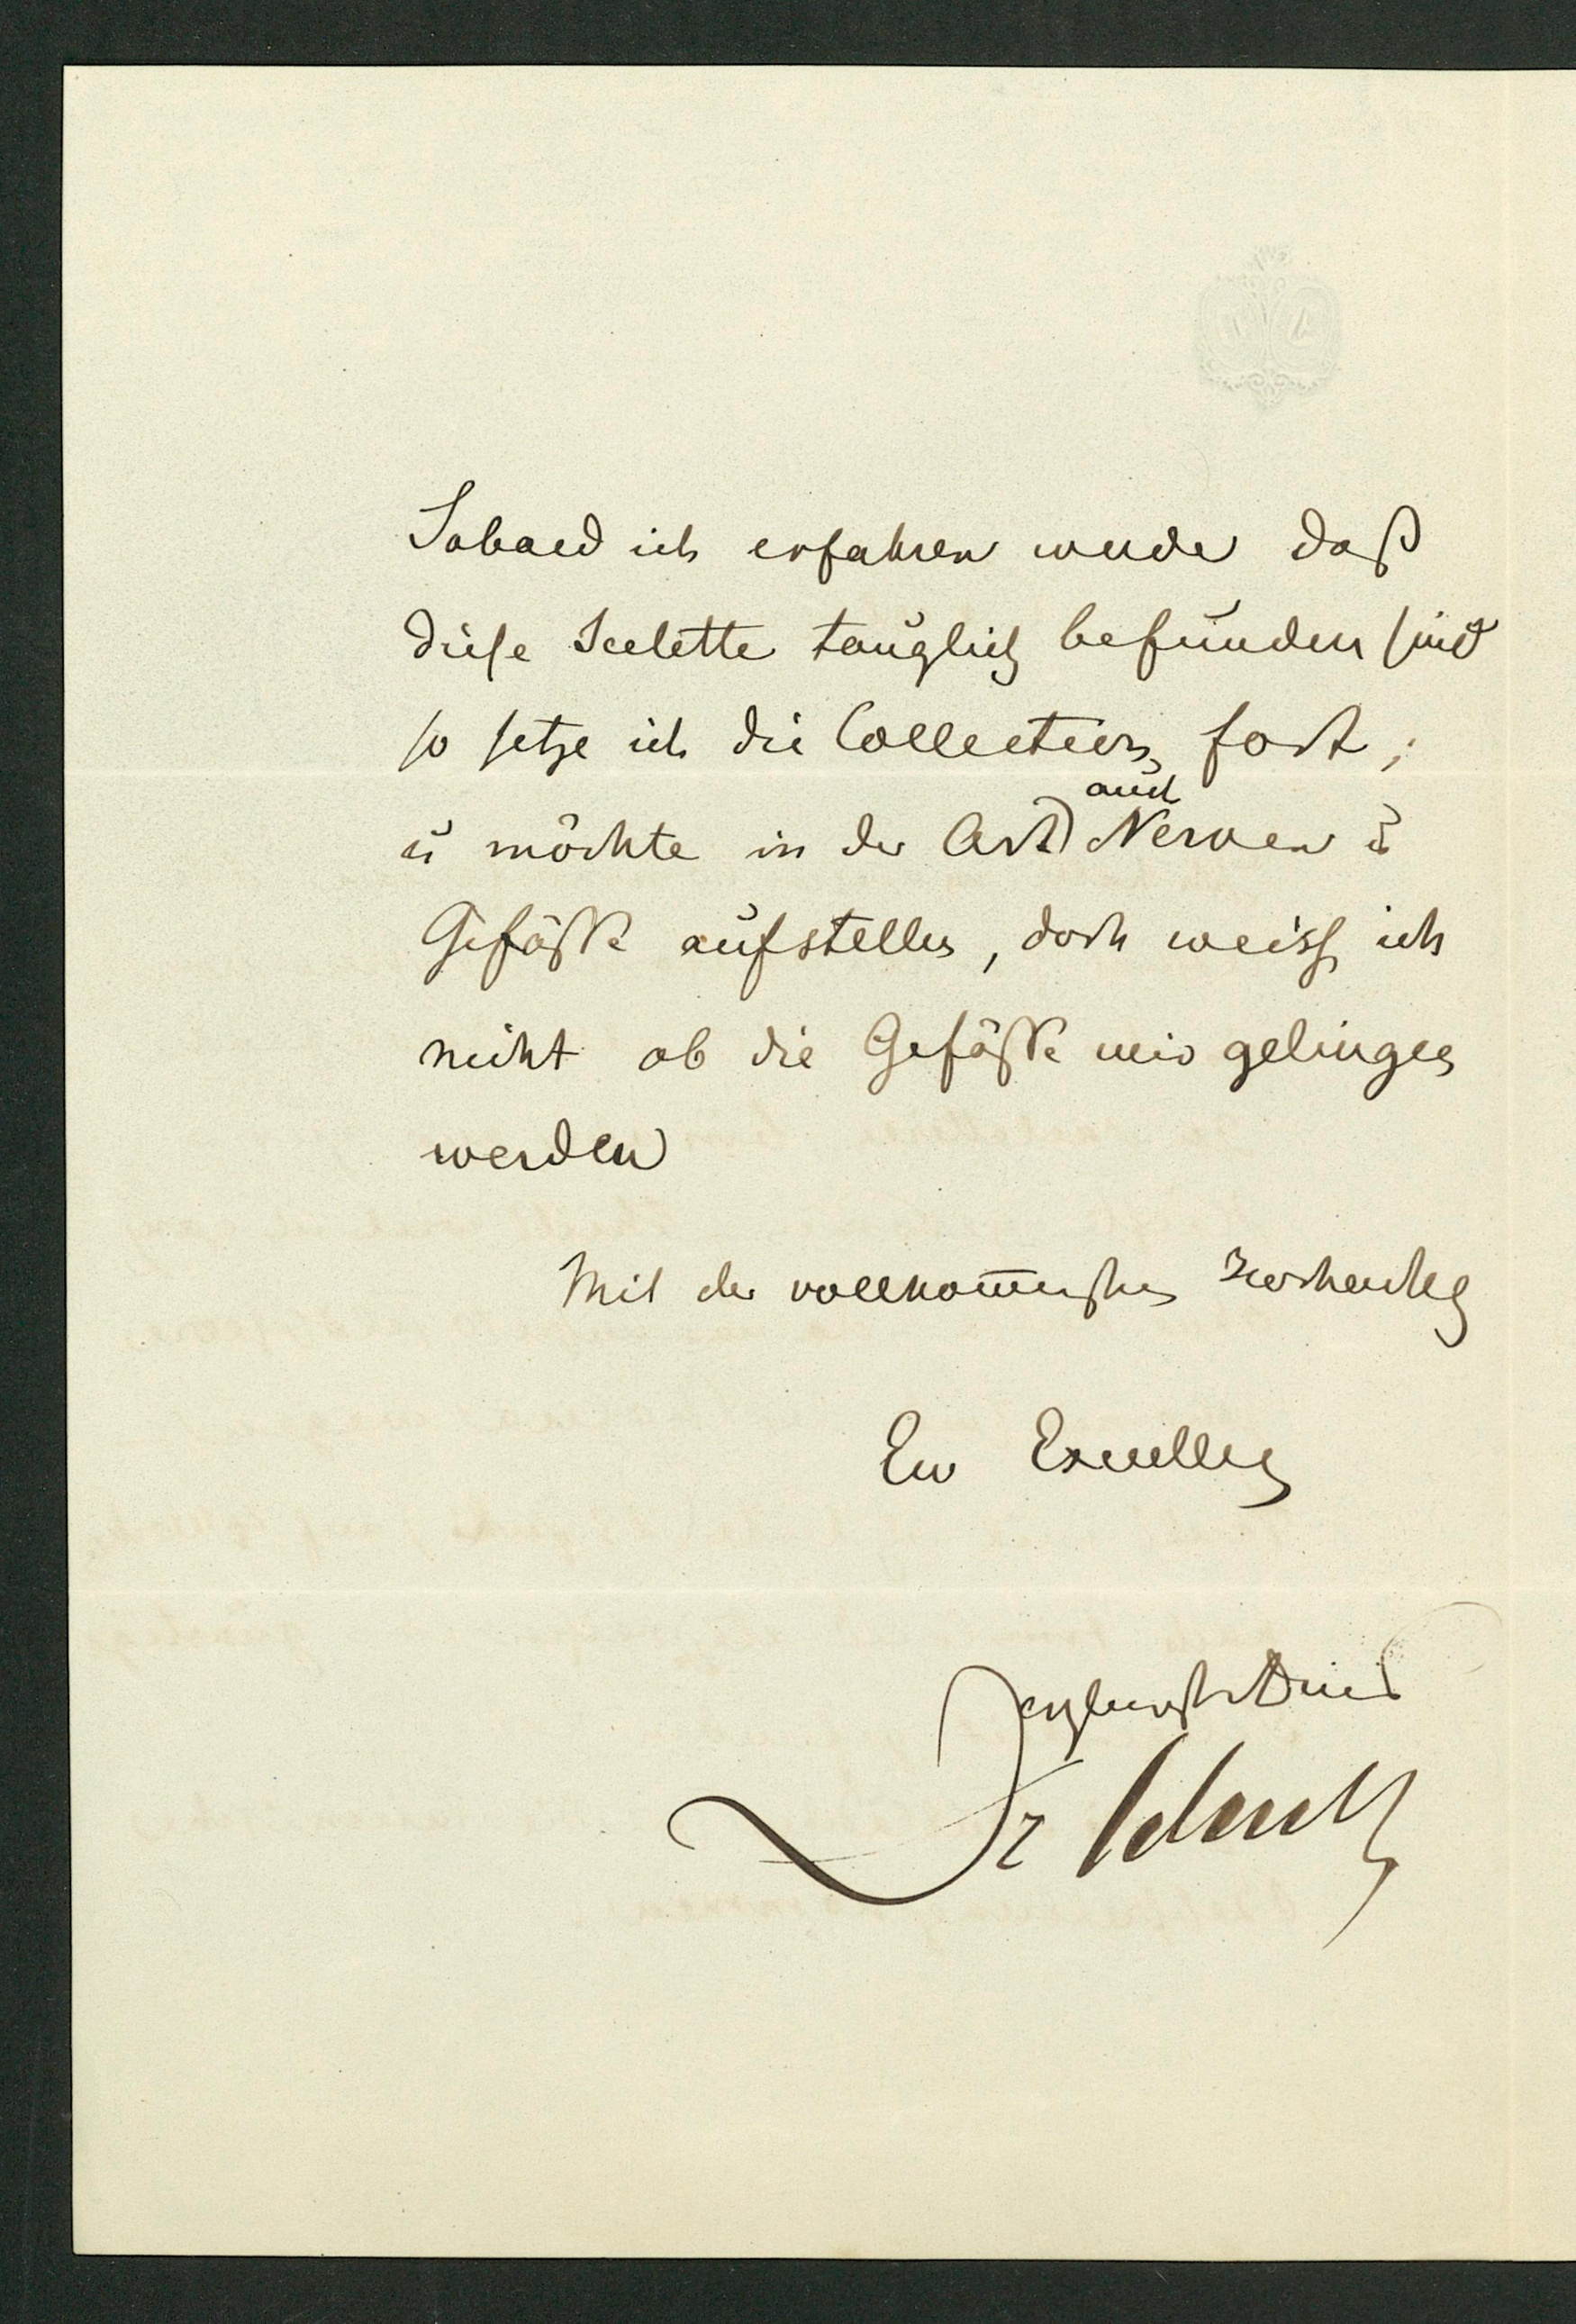 Sobald ich erfahren werde daß
diese Scelette tauglich befunden sind
so setze ich die Collection fort;
u möchte in der Art auch Nerven &
Gefäße aufstellen, doch weiss ich
nicht ob die Gefäße mir gelingen
werden
Mit der vollkom̅ensten Hochachtg
Ew Excellenz
Dr Schultz